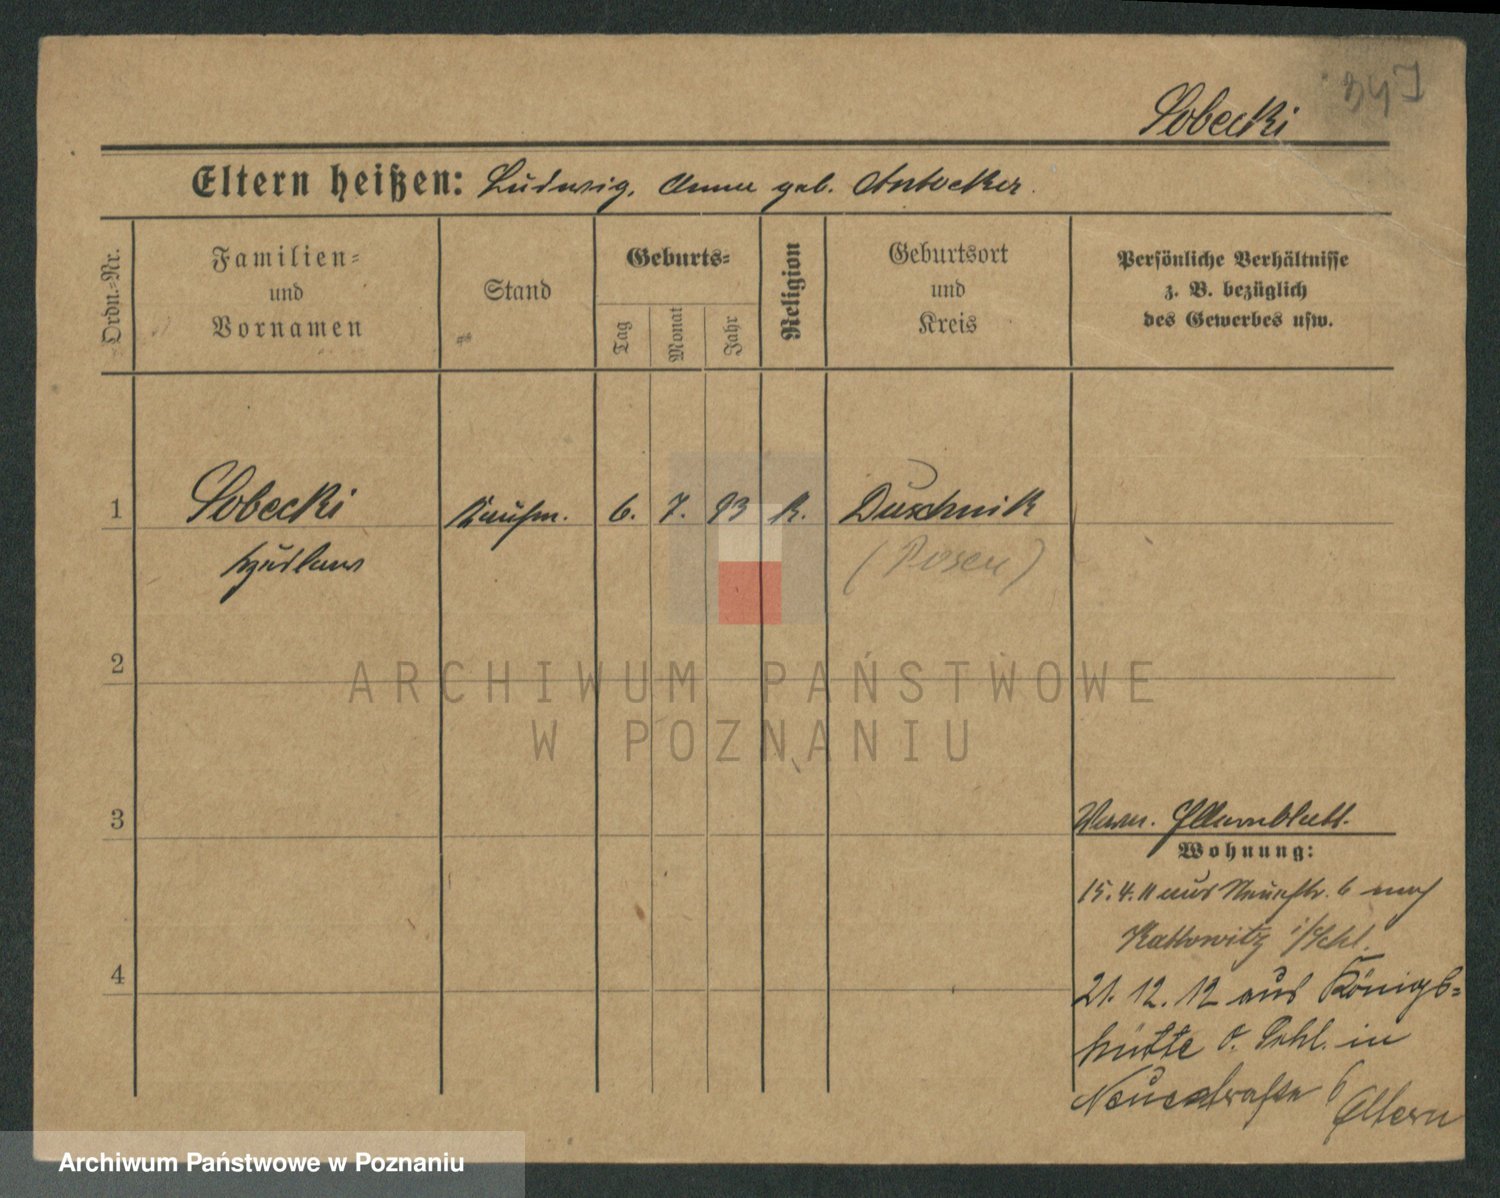 Sobecki
Eltern heißen: Ludwig, Anna geb. Antecker.
Ordn.-Nr.
Familien-
und
Vornamen
Stand
Geburts-
Tag
Monat
Jahr
Religion
Geburtsort
und
Kreis
Persönliche Verhältnisse
z. B. bezüglich
des Gewerbes usw.
1
Sobecki
Kaufm.
6.
7.
93
K.
Duschnik
(Posen)
2
ARCHIWUM PAŃSTWOWE
W POZNANIU
3
Elternblatt.
Wohnung:
15. 4. 11 aus Neuestr. 6 nach
Kattowitz i/Schl.
4
21. 12. 12 aus Königs-
hütte O. Schl. in
Neuestraße 6
Eltern
Archiwum Państwowe w Poznaniu